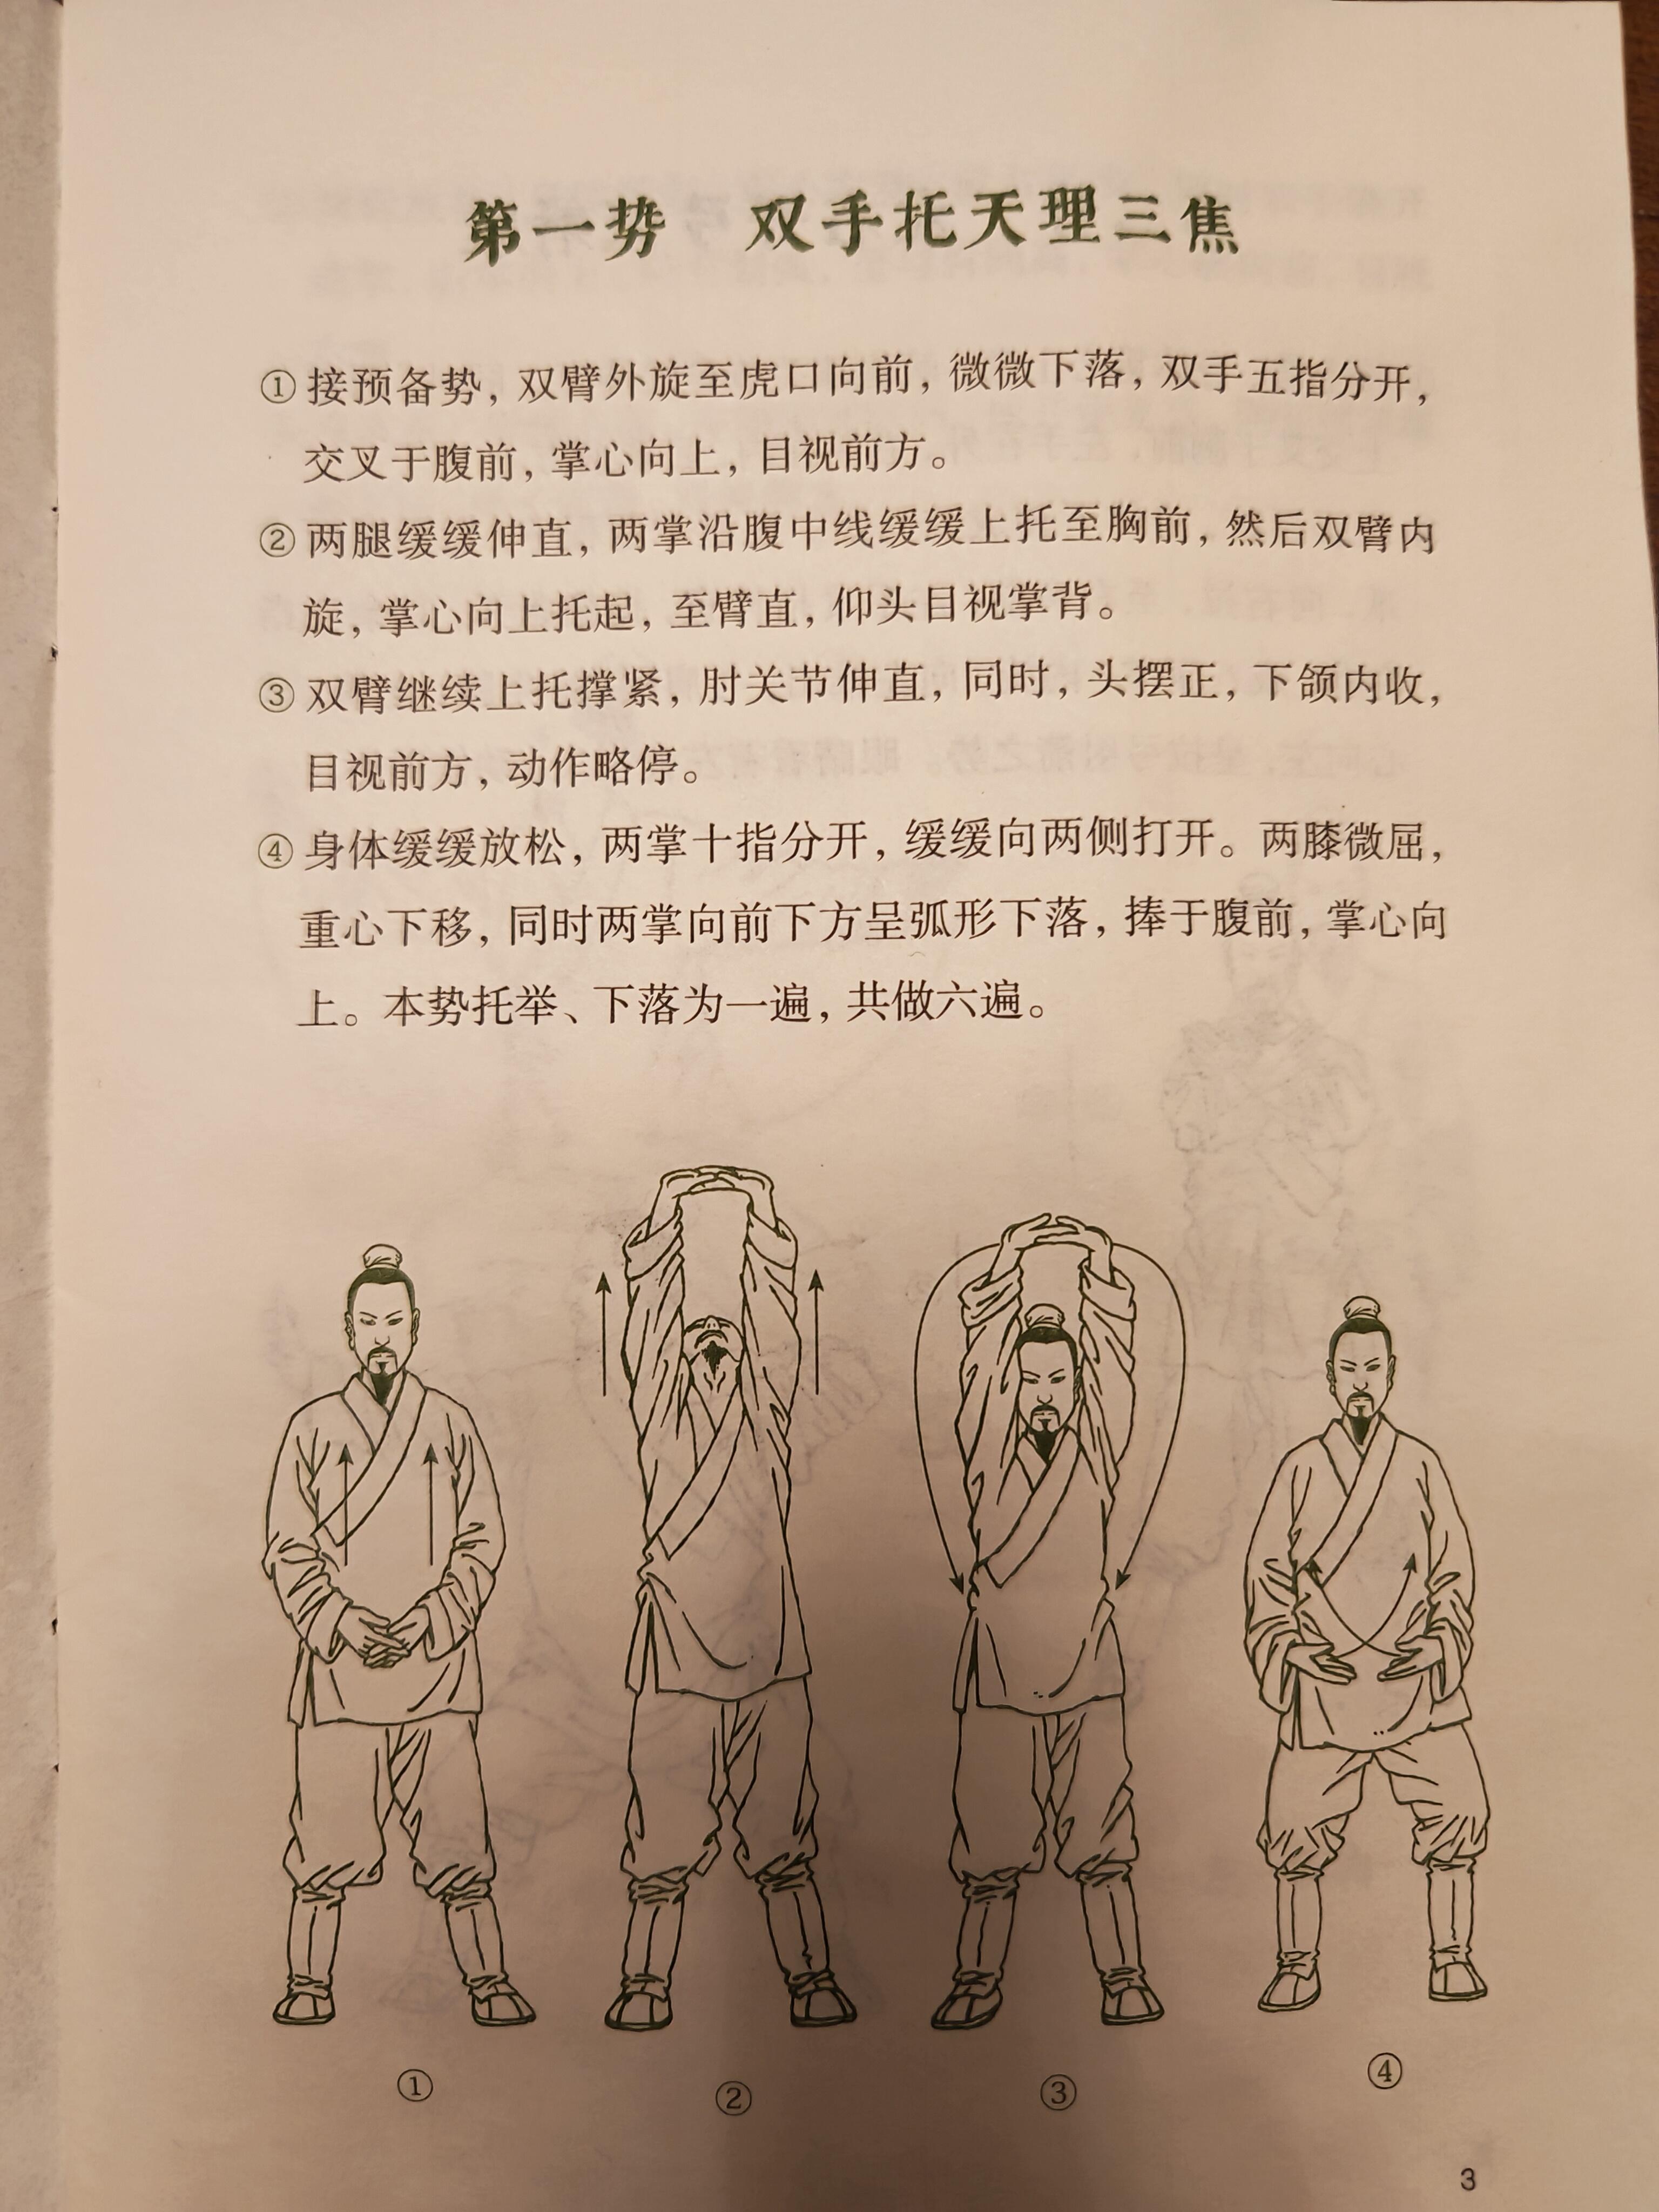 第一势　双手托天理三焦
①接预备势，双臂外旋至虎口向前，微微下落，双手五指分开，
交叉于腹前，掌心向上，目视前方。
②两腿缓缓伸直，两掌沿腹中线缓缓上托至胸前，然后双臂内
旋，掌心向上托起，至臂直，仰头目视掌背。
③双臂继续上托撑紧，肘关节伸直，同时，头摆正，下颌内收，
目视前方，动作略停。
④身体缓缓放松，两掌十指分开，缓缓向两侧打开。两膝微屈，
重心下移，同时两掌向前下方呈弧形下落，捧于腹前，掌心向
上。本势托举、下落为一遍，共做六遍。
① ② ③ ④
3